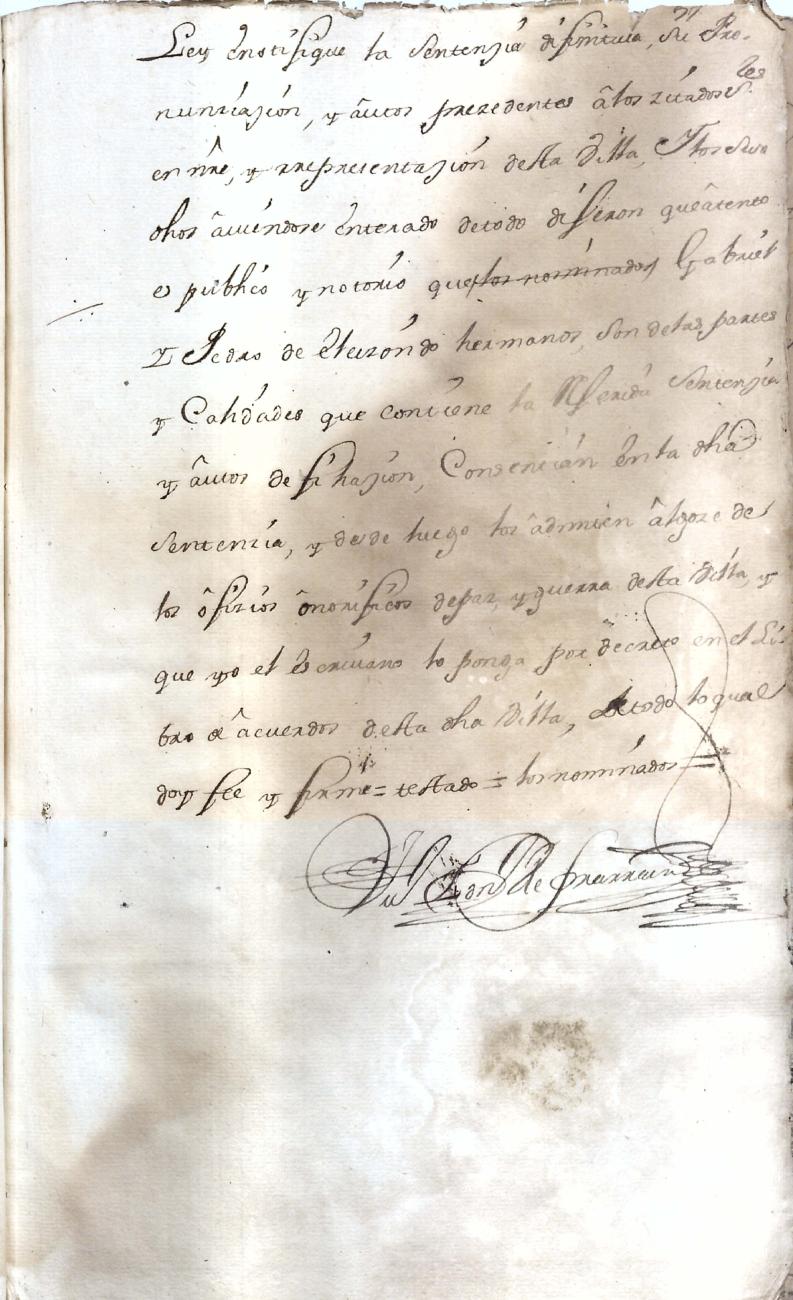 Ley é notifique la Sentenzia difinitiva, Su Pro-
nunziazion, y âutos prezedentes â los zitados S.res
en nre, y rrepresentazion desta Villa, Y los Suso
dhos âviendose enterado de todo diSeron que âtento
es publico y notorio que los nominados Gabriel
y Pedro de Eleizondo hermanos, Son de las partes
y Calidades que contiene la Referida Sentenzia
y âutos de filiazion, Consentian en la dha
Sentenzia, y desde luego los âdmiten âl goze de
los ôfizios ônorificos de paz, y guerra desta Villa, y
que yo el Escrivano lo ponga por decreto en el Li-
bro de âcuerdos desta dha Villa, de todo lo qual
doy fee y firmé = testado = los nominados =